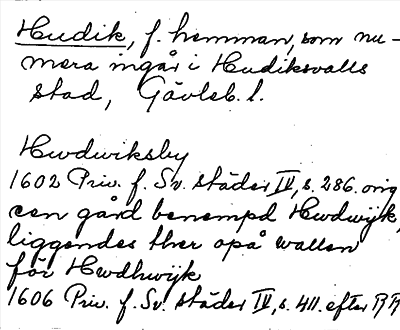 Hudik, f. hemman, som nu-
mera ingår i Hudiksvalls
stad, Gävleb. l.
Hwdwiksby
1602 Priv. f. Sv. städer IV, s. 286. orig
een gård benempd Hwdwijk,
liggendes ther opå wallen
för Hwdhwijk
1606 Priv. f. Sv. städer IV, s. 411. efter RR